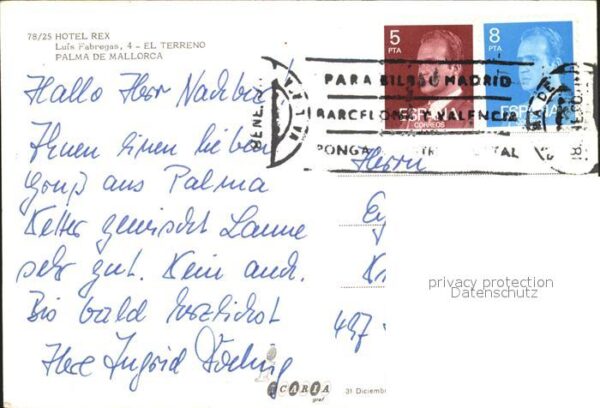 78/25 HOTEL REX
Luis Fabregas, 4 - EL TERRENO
PALMA DE MALLORCA
5
PTA
8
PTA
ESPAÑA
CORREOS
ESPAÑA
PARA BILBAO MADRID
BARCELONA Y VALENCIA
PONGA DISTRITO POSTAL
Hallo Herr Nachbar
Ihnen einen lieben
Gruß aus Palma
Wetter gemischt Laune
sehr gut. Kein and.
Bis bald herzlichst
Ihre Ingrid
Herrn
497
privacy protection
Datenschutz
ICARIA
graf
31 Diciemb